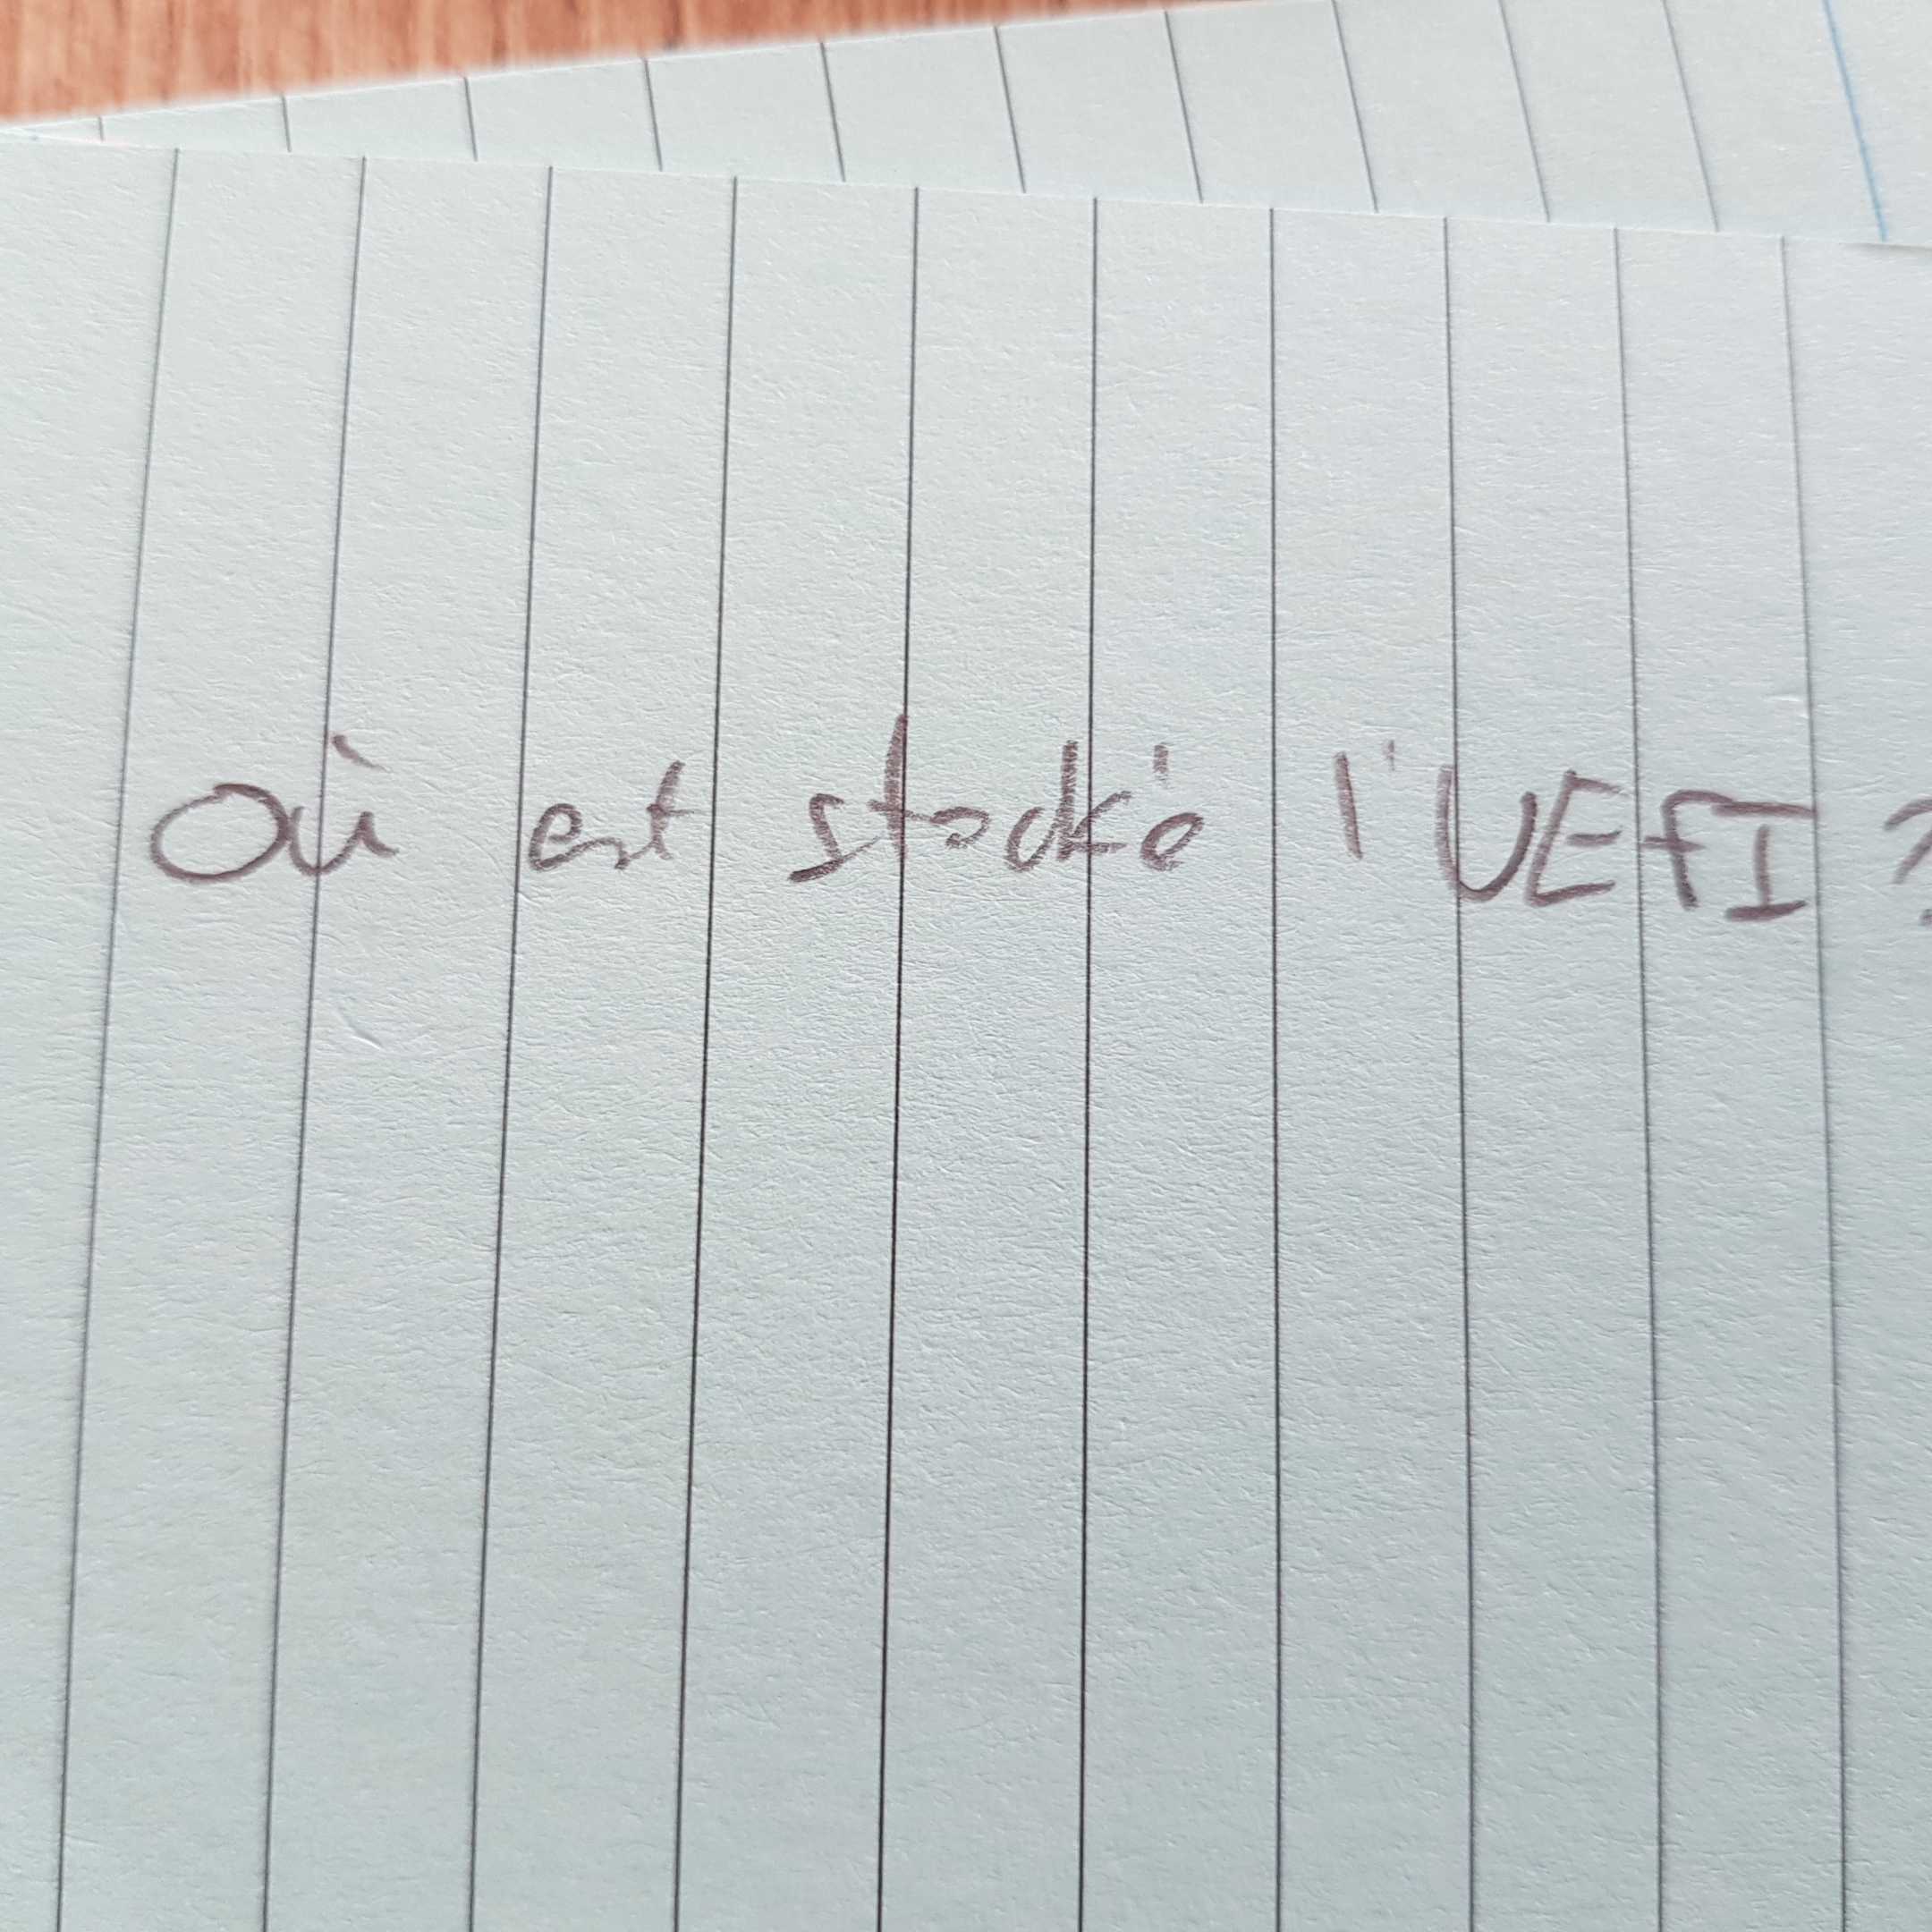 Où est stocké l'UEFI ?